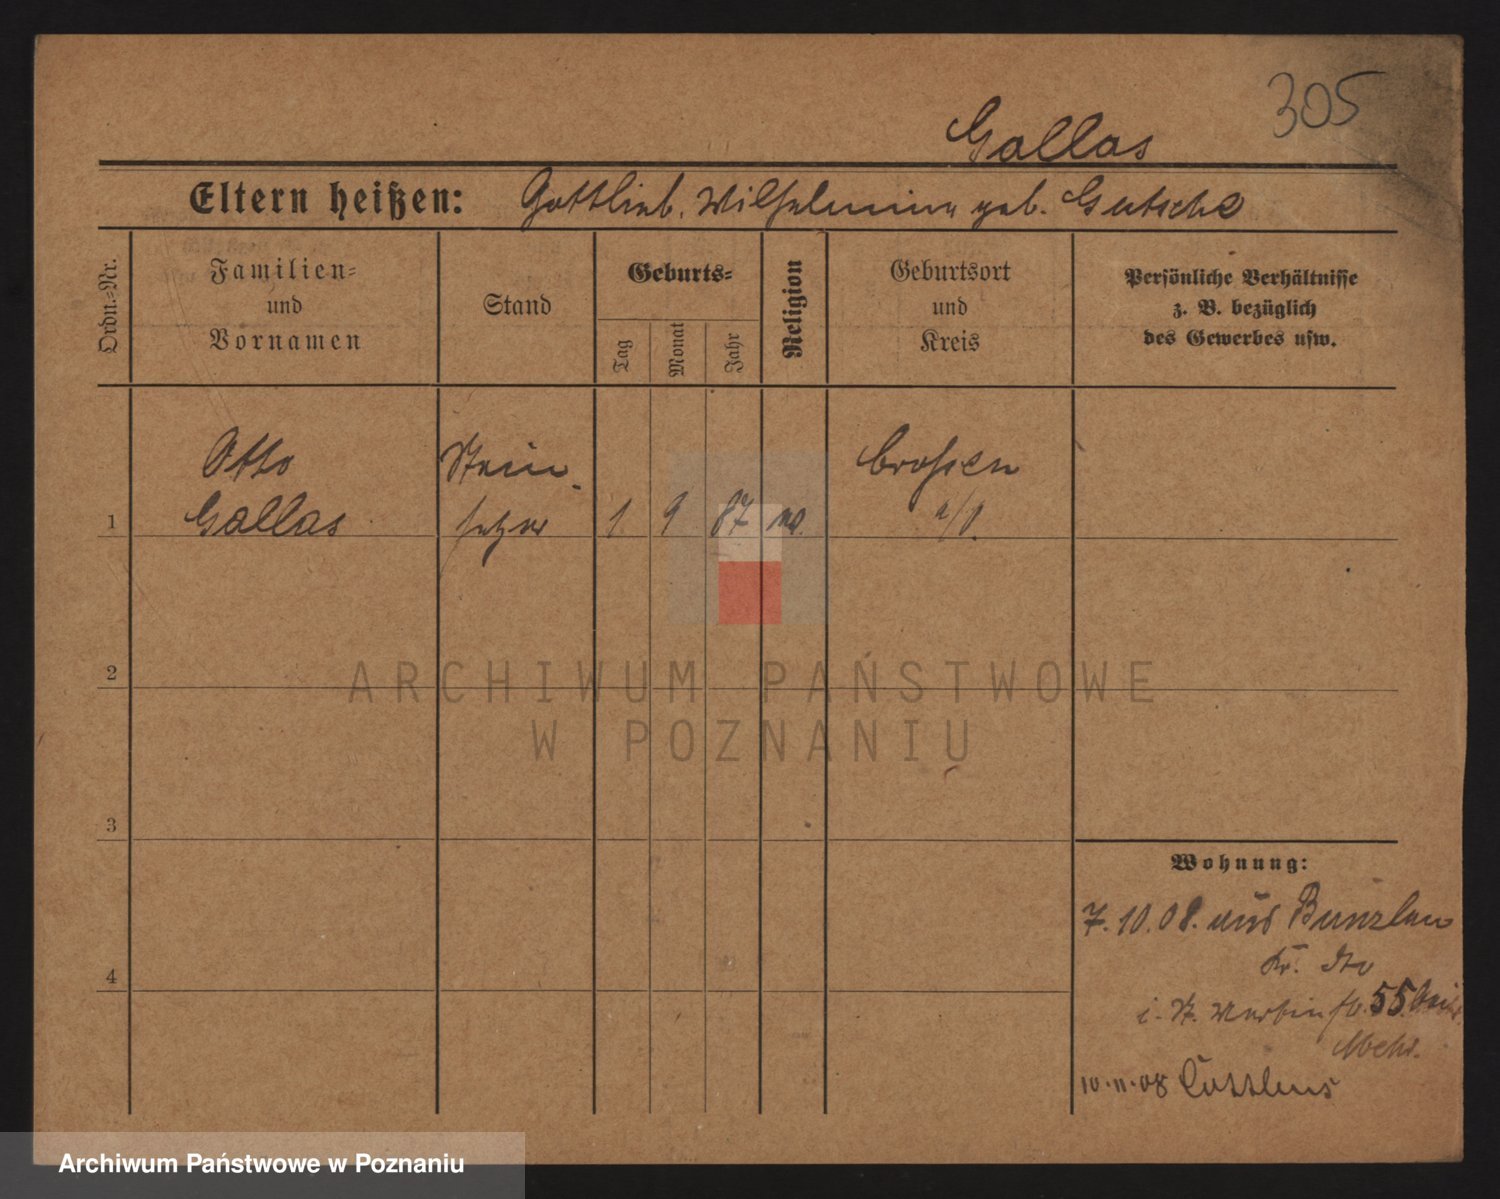 305
Gallas
Eltern heißen: Gottlieb, Wilhelmine geb. Gutsche
Ordn.-Nr.
Familien-
und
Vornamen
Stand
Geburts-
Tag
Monat
Jahr
Religion
Geburtsort
und
Kreis
Persönliche Verhältnisse
z. B. bezüglich
des Gewerbes usw.
Otto
Gallas
Stein-
setzer
1
1 9 87
Crossen
a/O.
2
3
4
Wohnung:
7.10.08. aus Bunzlau
Kr. dto
i. St. Martin str. 55.
10.11.08 Cottbus
ARCHIWUM PAŃSTWOWE
W POZNANIU
Archiwum Państwowe w Poznaniu